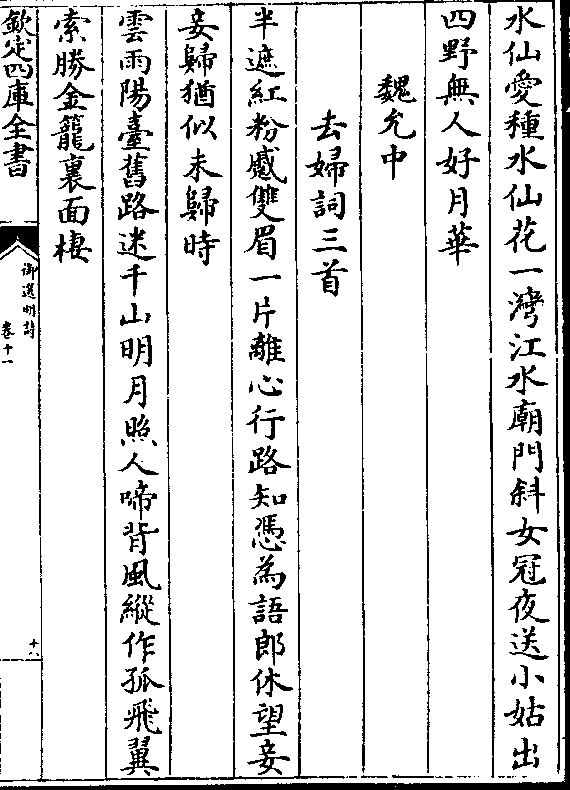 水仙愛種水仙花一灣江水廟門斜女冠夜送小姑出
四野無人好月華
魏允中
去婦詞三首
半遮紅粉蹙雙眉一片離心行路知憑為語郎休望妾
妾歸猶似未歸時
雲雨陽臺舊路迷千山明月照人啼背風縱作孤飛翼
索勝金籠裏面棲
欽定四庫全書
御選明詩
卷十一
十六